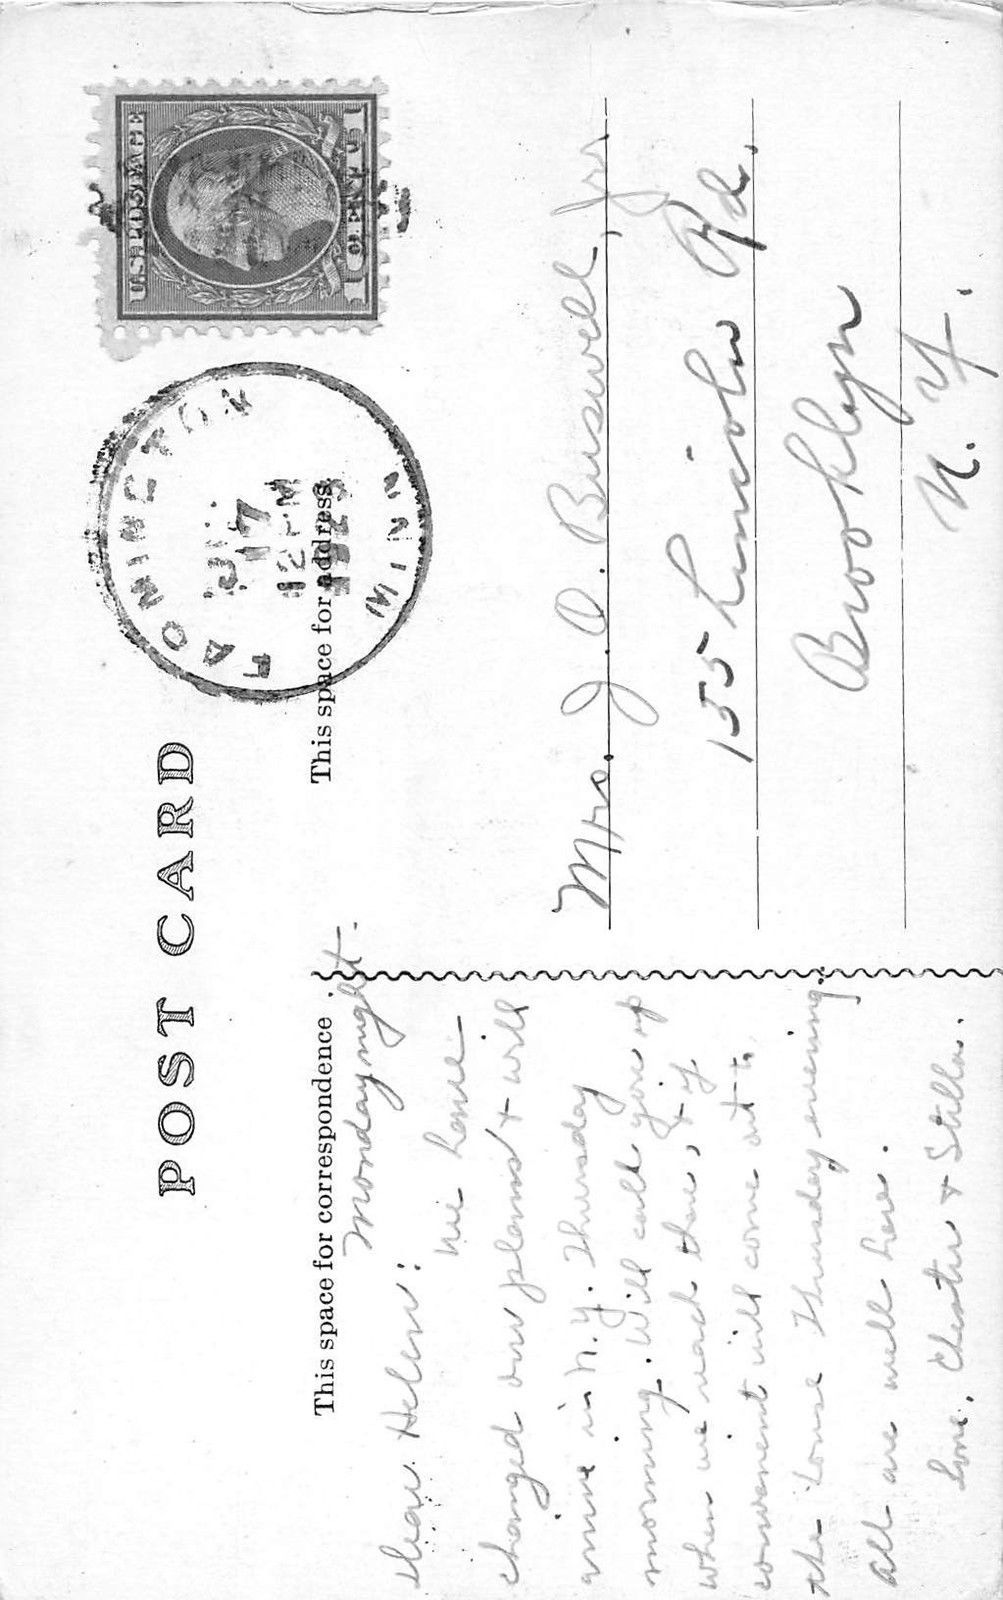 POST CARD
U.S. POSTAGE
1 CENT 1
FARMINGTON
JUL
17
12 PM
MINN
This space for correspondence
This space for address.
Monday night.
Dear Helen:
We have
changed our plans & will
arrive in N.Y. Thursday
morning. Will call you up
when we reach there, & if
convenient will come out to
the house Thursday evening.
All are well here.
Love, Chester & Stella.
Mrs. J. O. Buswell, Jr.
155 Lincoln Rd.
Brooklyn
N.Y.